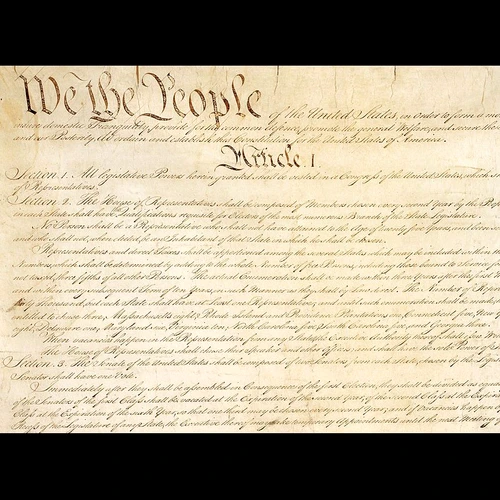 We the People of the United States, in order to form a mo
domestic Tranquility, provide for the common defence, promote the general Welfare, and secure the
and our Posterity, do ordain and establish this Constitution for the United States of America.
Article. I.
Section. 1. All legislative Powers herein granted shall be vested in a Congress of the United States, which s
of Representatives.
Section. 2. The House of Representatives shall be composed of Members chosen every second Year by the
in each State shall have Qualifications requisite for Electors of the most numerous Branch of the State Legislature.
No Person shall be a Representative who shall not have attained to the Age of twenty five Years, and been
and who shall not, when elected, be an Inhabitant of that State in which he shall be chosen.
Representatives and direct Taxes shall be apportioned among the several States which may be included within
Numbers, which shall be determined by adding to the whole Number of free Persons, including those bound to
not taxed, three fifths of all other Persons. The actual Enumeration shall be made within three Years after the first
and within every subsequent Term of ten Years, in such Manner as they shall by Law direct. The Number of
thirty Thousand, but each State shall have at Least one Representative; and until such enumeration shall be made,
entitled to chuse three, Massachusetts eight, Rhode Island and Providence Plantations one, Connecticut five, New
eight, Delaware one, Maryland six, Virginia ten, North Carolina five, South Carolina five, and Georgia three.
When vacancies happen in the Representation from any State, the Executive Authority thereof shall
The House of Representatives shall chuse their Speaker and other Officers; and shall have the sole
Section. 3. The Senate of the United States shall be composed of two Senators from each State, chosen by the
Senator shall have one Vote.
Immediately after they shall be assembled in Consequence of the first Election, they shall be divided as
of the Senators of the first Class shall be vacated at the Expiration of the second Year, of the second Class at the
Class at the Expiration of the sixth Year, so that one third may be chosen every second Year; and if Vacancies happen
Recess of the Legislature of any State, the Executive thereof may make temporary Appointments until the next Meeting